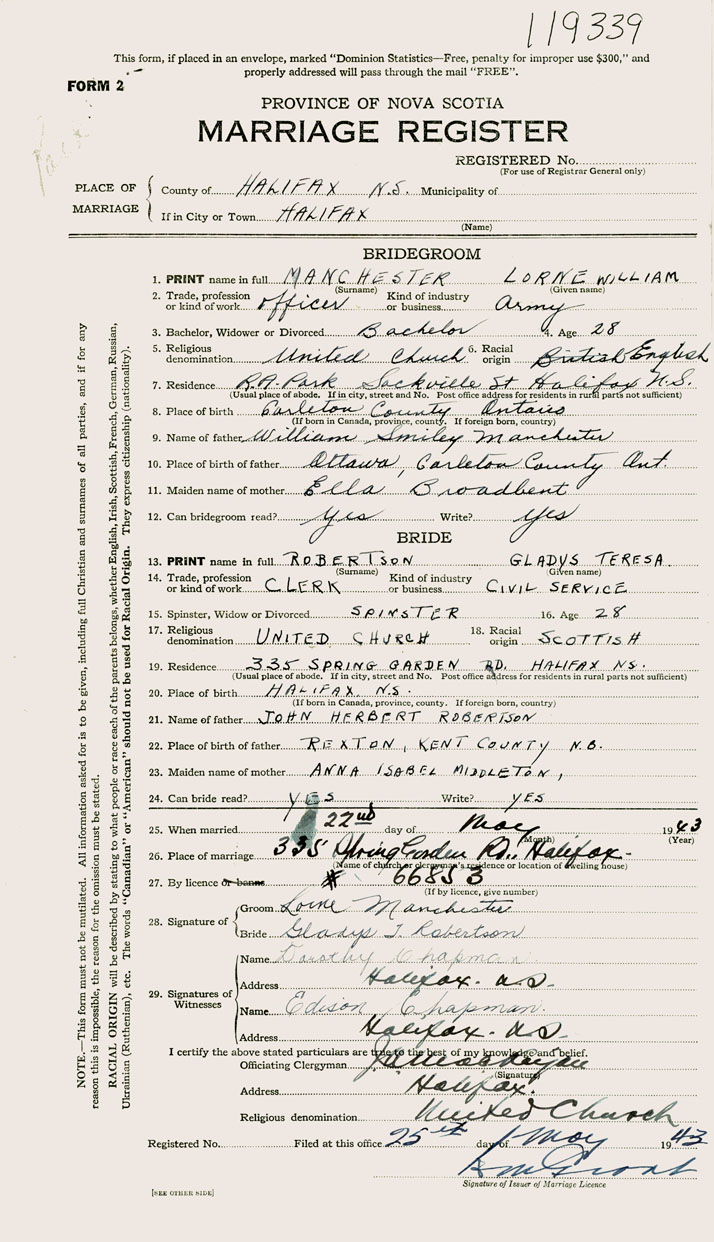 119339
This form, if placed in an envelope, marked "Dominion Statistics—Free, penalty for improper use $300," and
properly addressed will pass through the mail "FREE".
FORM 2
PROVINCE OF NOVA SCOTIA
MARRIAGE REGISTER
REGISTERED No.
(For use of Registrar General only)
PLACE OF MARRIAGE
County of HALIFAX N.S. Municipality of
If in City or Town HALIFAX
(Name)
BRIDEGROOM
1. PRINT name in full MANCHESTER LORNE WILLIAM
(Surname) (Given name)
2. Trade, profession or kind of work officer Kind of industry or business Army
3. Bachelor, Widower or Divorced Bachelor 4. Age 28
5. Religious denomination United Church 6. Racial origin British English
7. Residence R.A. Park Sackville St Halifax N.S.
(Usual place of abode. If in city, street and No. Post office address for residents in rural parts not sufficient)
8. Place of birth Carleton County Ontario
(If born in Canada, province, county. If foreign born, country)
9. Name of father William Smiley Manchester
10. Place of birth of father Ottawa, Carleton County Ont.
11. Maiden name of mother Ella Broadbent
12. Can bridegroom read? Yes Write? Yes
BRIDE
13. PRINT name in full ROBERTSON GLADYS TERESA
(Surname) (Given name)
14. Trade, profession or kind of work CLERK Kind of industry or business CIVIL SERVICE
15. Spinster, Widow or Divorced SPINSTER 16. Age 28
17. Religious denomination UNITED CHURCH 18. Racial origin SCOTTISH
19. Residence 335 SPRING GARDEN RD. HALIFAX NS.
(Usual place of abode. If in city, street and No. Post office address for residents in rural parts not sufficient)
20. Place of birth HALIFAX. N.S.
(If born in Canada, province, county. If foreign born, country)
21. Name of father JOHN HERBERT ROBERTSON
22. Place of birth of father REXTON, KENT COUNTY N.B.
23. Maiden name of mother ANNA ISABEL MIDDLETON,
24. Can bride read? YES Write? YES
25. When married 22nd day of May 1943
(Month) (Year)
26. Place of marriage 335 Spring Garden Rd., Halifax-
(Name of church or clergyman's residence or location of dwelling house)
27. By licence or banns # 66853
(If by licence, give number)
28. Signature of
Groom Lorne Manchester
Bride Gladys T. Robertson
29. Signatures of Witnesses
Name Dorothy Chapman
Address Halifax. N.S.
Name Edison Chapman.
Address Halifax. N.S.
I certify the above stated particulars are true to the best of my knowledge and belief.
Officiating Clergyman
(Signature)
Address Halifax.
Religious denomination United Church
Registered No. Filed at this office 25th day of May 1943
Signature of Issuer of Marriage Licence
[SEE OTHER SIDE]
NOTE.—This form must not be mutilated. All information asked for is to be given, including full Christian and surnames of all parties, and if for any
reason this is impossible, the reason for the omission must be stated.
RACIAL ORIGIN will be described by stating to what people or race each of the parents belongs, whether English, Irish, Scottish, French, German, Russian,
Ukrainian (Ruthenian), etc. The words "Canadian" or "American" should not be used for Racial Origin. They express citizenship (nationality).